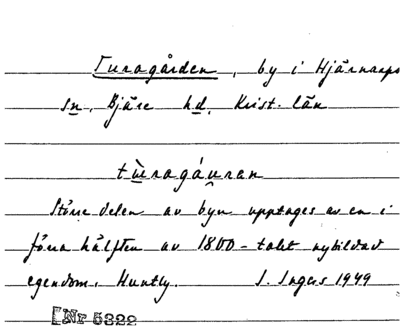 Turagården, by i Hjärnarps
sn, Bjäre hd, Krist. län
tùragáu̯ran
Större delen av byn upptages av en i
förra hälften av 1800-talet nybildad
egendom, Huntly. S. Ingers 1949
[Nr 5322